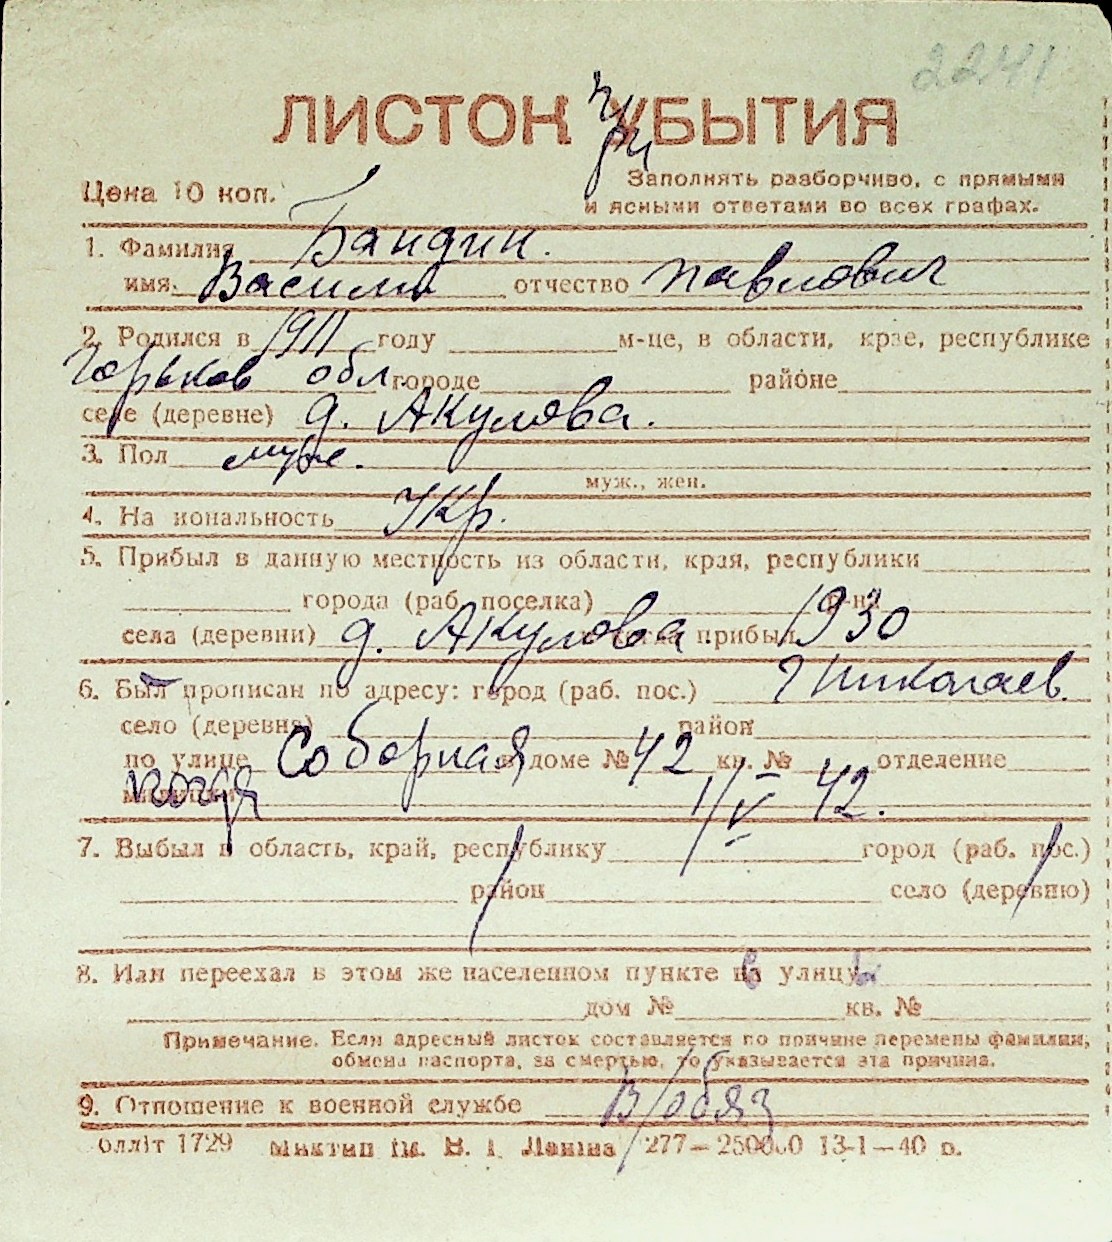 2241
ЛИСТОК УБЫТИЯ
Цена 10 коп.
Заполнять разборчиво, с прямыми
и ясными ответами во всех графах.
1. Фамилия Бандин.
имя Василий отчество Павлович
2. Родился в 1911 году м-це, в области, крае, республике
Горьков обл городе районе
селе (деревне) д. Акулова.
3. Пол муж.
муж., жен.
4. На иональность Укр.
5. Прибыл в данную местность из области, края, республики
города (раб. поселка) р-на
села (деревни) д. Акулова прибыл 1930
6. Был прописан по адресу: город (раб. пос.) г Николаев.
село (деревня) район
по улице Соборная доме № 42 кв. № отделение
милиции когда 1/V 42.
7. Выбыл в область, край, республику город (раб. пос.)
район село (деревню)
8. Или переехал в этом же населенном пункте на улицу
дом № кв. №
Примечание. Если адресный листок составляется по причине перемены фамилии,
обмена паспорта, за смертью, то указывается эта причина.
9. Отношение к военной службе В/обяз
олліт 1729 Миктип ім. В. І. Леніна 277—250000 13-1—40 р.